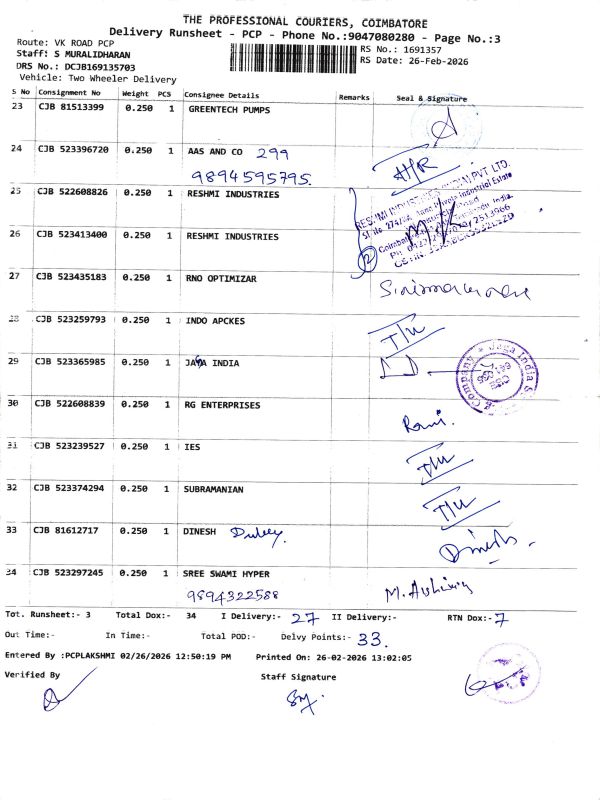 THE PROFESSIONAL COURIERS, COIMBATORE
Delivery Runsheet - PCP - Phone No.:9047080280 - Page No.:3
Route: VK ROAD PCP
RS No.: 1691357
Staff: S MURALIDHARAN
RS Date: 26-Feb-2026
DRS No.: DCJB169135703
Vehicle: Two Wheeler Delivery
S No Consignment No Weight PCS Consignee Details Remarks Seal & Signature
23 CJB 81513399 0.250 1 GREENTECH PUMPS
24 CJB 523396720 0.250 1 AAS AND CO 299
9894595795.
25 CJB 522608826 0.250 1 RESHMI INDUSTRIES
26 CJB 523413400 0.250 1 RESHMI INDUSTRIES
27 CJB 523435183 0.250 1 RNO OPTIMIZAR
28 CJB 523259793 0.250 1 INDO APCKES
29 CJB 523365985 0.250 1 INDIA
30 CJB 522608839 0.250 1 RG ENTERPRISES
Rani.
31 CJB 523239527 0.250 1 IES
32 CJB 523374294 0.250 1 SUBRAMANIAN
33 CJB 81612717 0.250 1 DINESH
Dinesh.
34 CJB 523297245 0.250 1 SREE SWAMI HYPER
9894322588
Tot. Runsheet:- 3 Total Dox:- 34 I Delivery:- 27 II Delivery:- RTN Dox:- 7
Out Time:- In Time:- Total POD:- Delvy Points:- 33.
Entered By :PCPLAKSHMI 02/26/2026 12:50:19 PM Printed On: 26-02-2026 13:02:05
Verified By Staff Signature